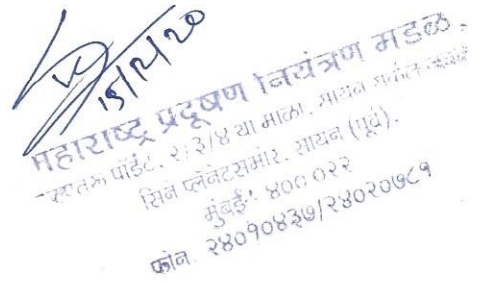 15/12/20
महाराष्ट्र प्रदूषण नियंत्रण मंडळ.
कल्पतरू पॉईंट, २/३/४ था माळा, सायन सर्कल जवळ
सिने प्लॅनेटसमोर, सायन (पूर्व).
मुंबई - ४०० ०२२
फोन. २४०१०४३७/२४०२०७८१